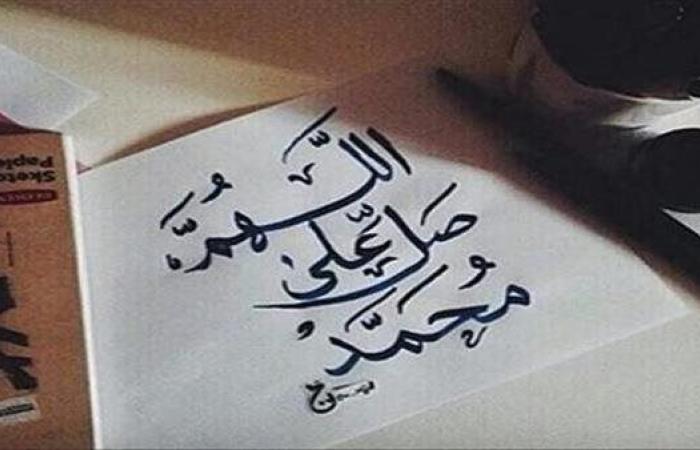 اللَّهُمَّ
صَلِّ عَلَى
مُحَمَّد
Sketch